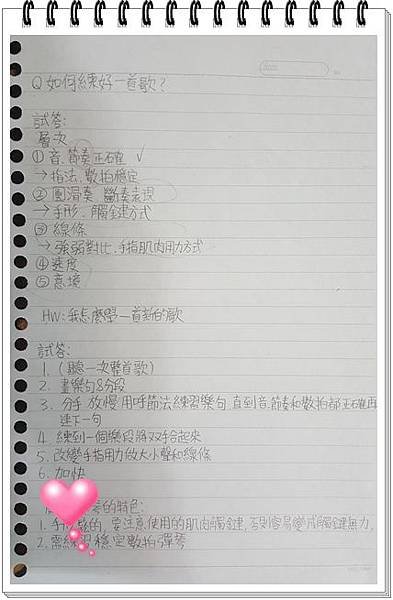 Q 如何練好一首歌?
試答:
層次
① 音.節奏正確 ✓
→指法.數拍穩定
② 圓滑奏 斷奏表現
→手形.觸鍵方式
③ 線條
→強弱對比.手指肌肉用力方式
④ 速度
⑤ 意境
HW:我怎麼學一首新的歌
試答:
1. (聽一次整首歌)
2. 畫樂句&分段
3. 分手 放慢 用呼節法練習樂句 直到音.節奏和數拍都正確再
連下一句
4. 練到一個樂段將双手合起來
5. 改變手指用力做大小聲和線條
6. 加快
奏的特色:
1. 手 鬆的,要注意使用的肌肉觸鍵,否則容易變成觸鍵無力.
2. 需練習穩定數拍彈琴